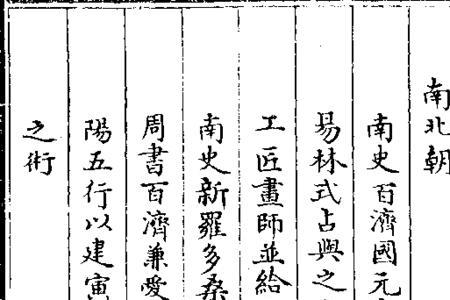 南北朝
南史百濟國元
易林式占與之
工匠畫師並給
南史新羅多桑
周書百濟兼愛
陽五行以建寅
之術